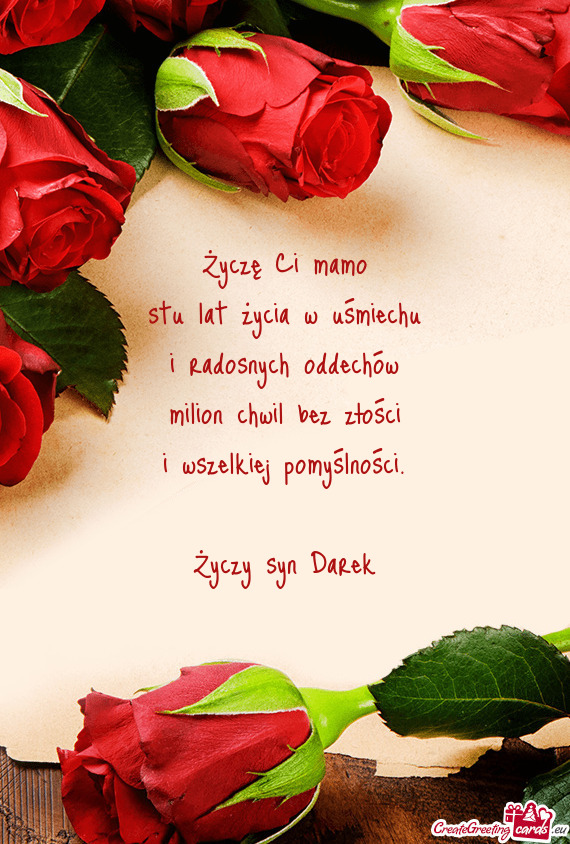 Życzę Ci mamo
stu lat życia w uśmiechu
i radosnych oddechów
milion chwil bez złości
i wszelkiej pomyślności.
Życzy syn Darek
CreateGreeting cards .eu